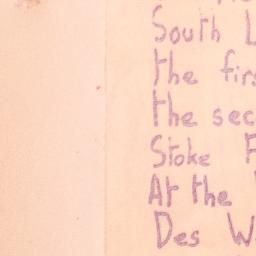 South L
the firs
the sec
Stoke F
At the
Des W